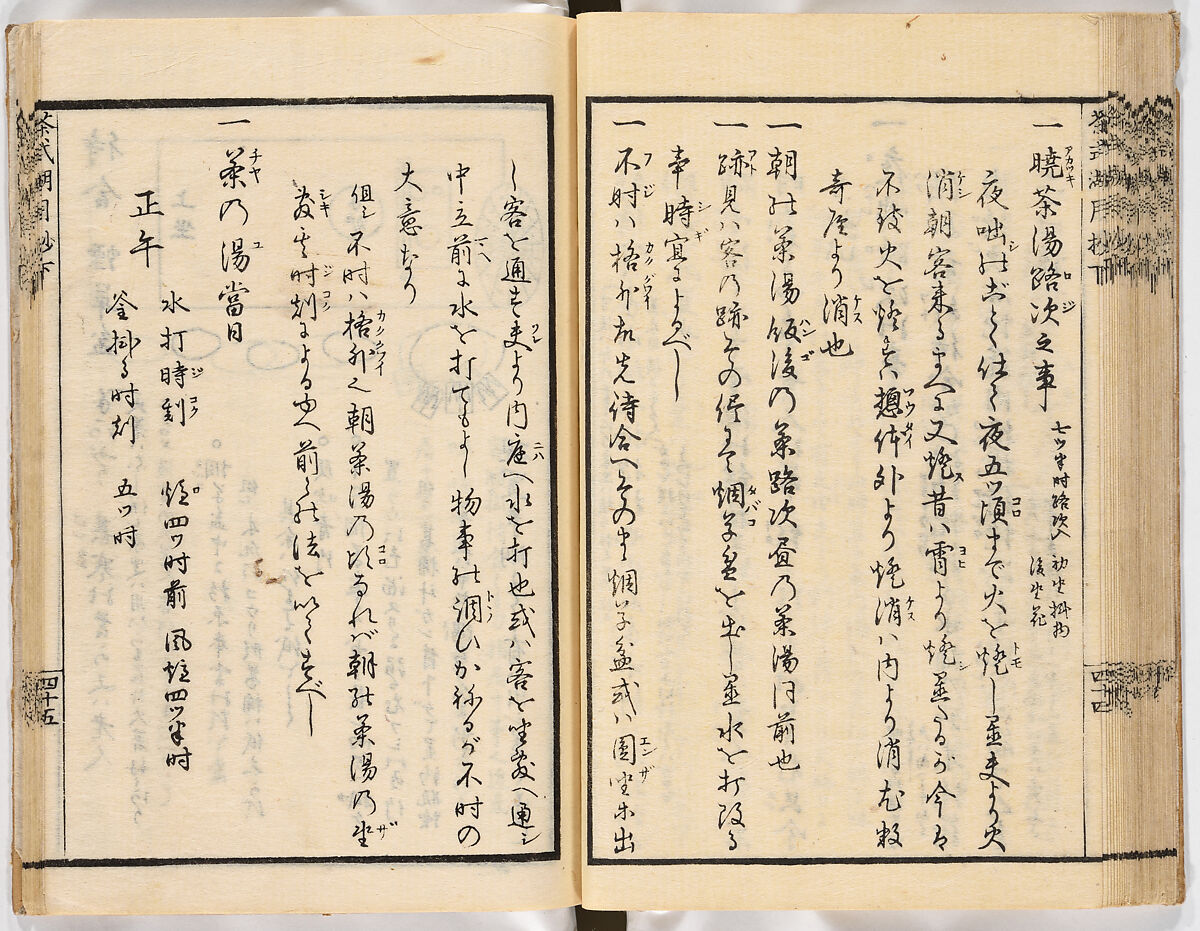 一 暁茶湯路次之事 七ツ半时路次入 初坐掛物 後坐花
夜咄のごとく仕く夜五ツ頃まで火を燈し置夫より火
消朝客来るまへに又燈昔ハ宵より燈置たるが今は
不致火を燈し惣体外より燈消ハ内より消尤数
寄屋より消也
一 朝の茶湯飯後の茶路次昼の茶湯同前也
一 跡見ハ客の跡その侭にて烟草盆を出し置水を打改る
事時宜によるべし
一 不时ハ格外故先待合へその まゝ烟草盆或ハ圓坐ホ出
し客を通す夫より内庭へ水を打也或ハ客を坐敷へ通シ
中立前に水を打てもよし物事の調ひか祢るが不时の
大意なり
但シ不时ハ格外之朝茶湯の比なれバ朝の茶湯の坐
敷其时刻による也前々の法を以てすべし
一 茶の湯當日
正午 水打時刻 炉四ツ时前 風炉四ツ半时
釜掛る时刻 五ツ时
茶式湖月抄下
四十五
茶式湖月抄下
四十四